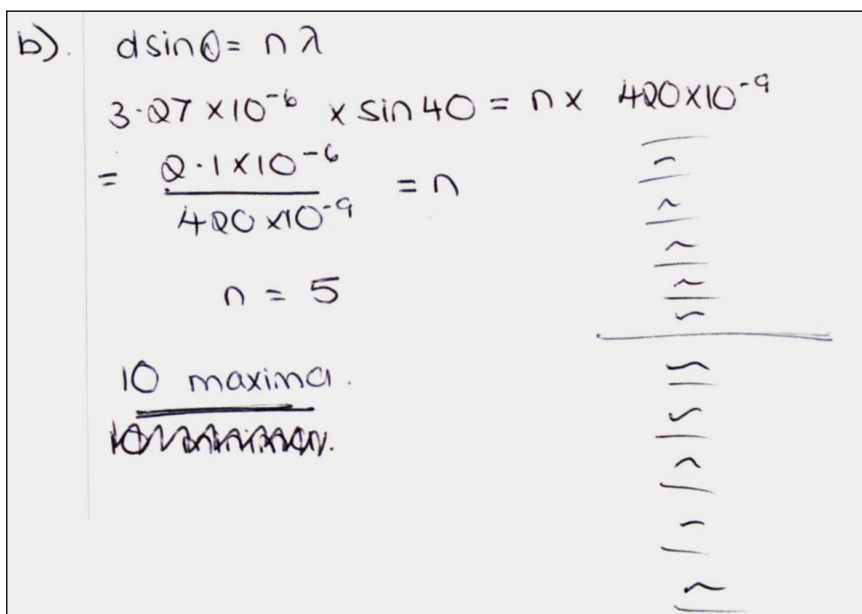 b). dsinθ = nλ
3·27 × 10⁻⁶ × sin 40 = n × 420×10⁻⁹
= 2·1×10⁻⁶ / 420×10⁻⁹ = n
n = 5
10 maxima.